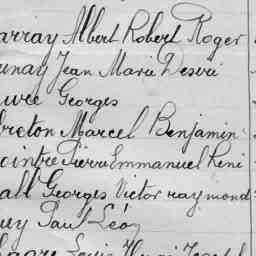 array Albert Robert Roger
unay Jean Marie Désiré
uvré Georges
breton Marcel Benjamin
ointre Pierre Emmanuel René
all Georges Victor raymond
uy Paul Léon
Louis Henri Joseph